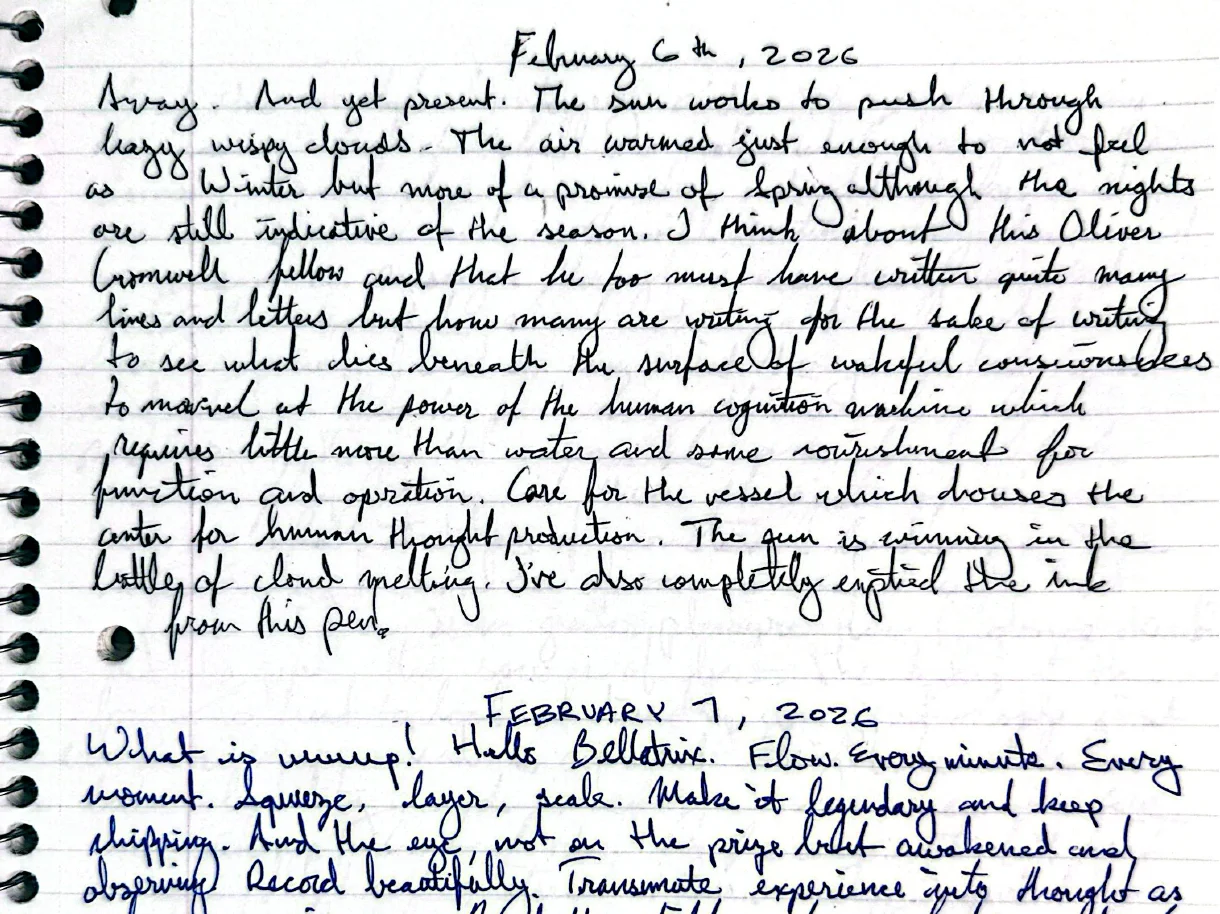 February 6th, 2026
Away. And yet present. The sun works to push through
hazy wispy clouds. The air warmed just enough to not feel
as Winter but more of a promise of Spring although the nights
are still indicative of the season. I think about this Oliver
Cromwell fellow and that he too must have written quite many
lines and letters but how many are writing for the sake of writing
to see what lies beneath the surface of wakeful consciousness
to marvel at the power of the human cognition machine which
requires little more than water and some nourishment for
function and operation. Care for the vessel which houses the
center for human thought production. The sun is winning in the
battle of cloud melting. I've also completely emptied the ink
from this pen.
FEBRUARY 7, 2026
What is uuuup! Hello Bellatrix. Flow. Every minute. Every
moment. Squeeze, layer, scale. Make it legendary and keep
shipping. And the eye, not on the prize but awakened and
observing. Record beautifully. Transmute experience into thought as